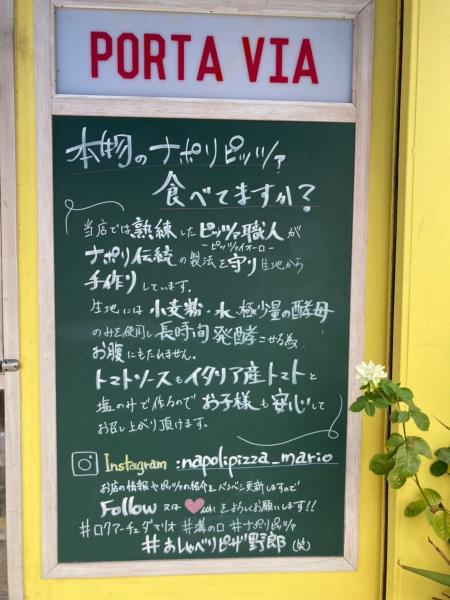 PORTA VIA
本物のナポリピッツァ
食べてますか?
当店では熟練したピッツァ職人が
-ピッツァイオーロ-
ナポリ伝統の製法を守り生地から
手作りしています。
生地には小麦粉・水・極少量の酵母
のみを使用し長時間発酵させる為
お腹にもたれません。
トマトソースもイタリア産トマトと
塩のみで作るので お子様も安心して
お召し上がり頂けます。
Instagram :napolipizza_mario
お店の情報やピッツァの紹介をバンバン更新しますので
Follow 又は をよろしくお願いします!!
#ロクアーチェダマリオ #溝の口 #ナポリピッツァ
#おしゃべりピザ野郎(笑)